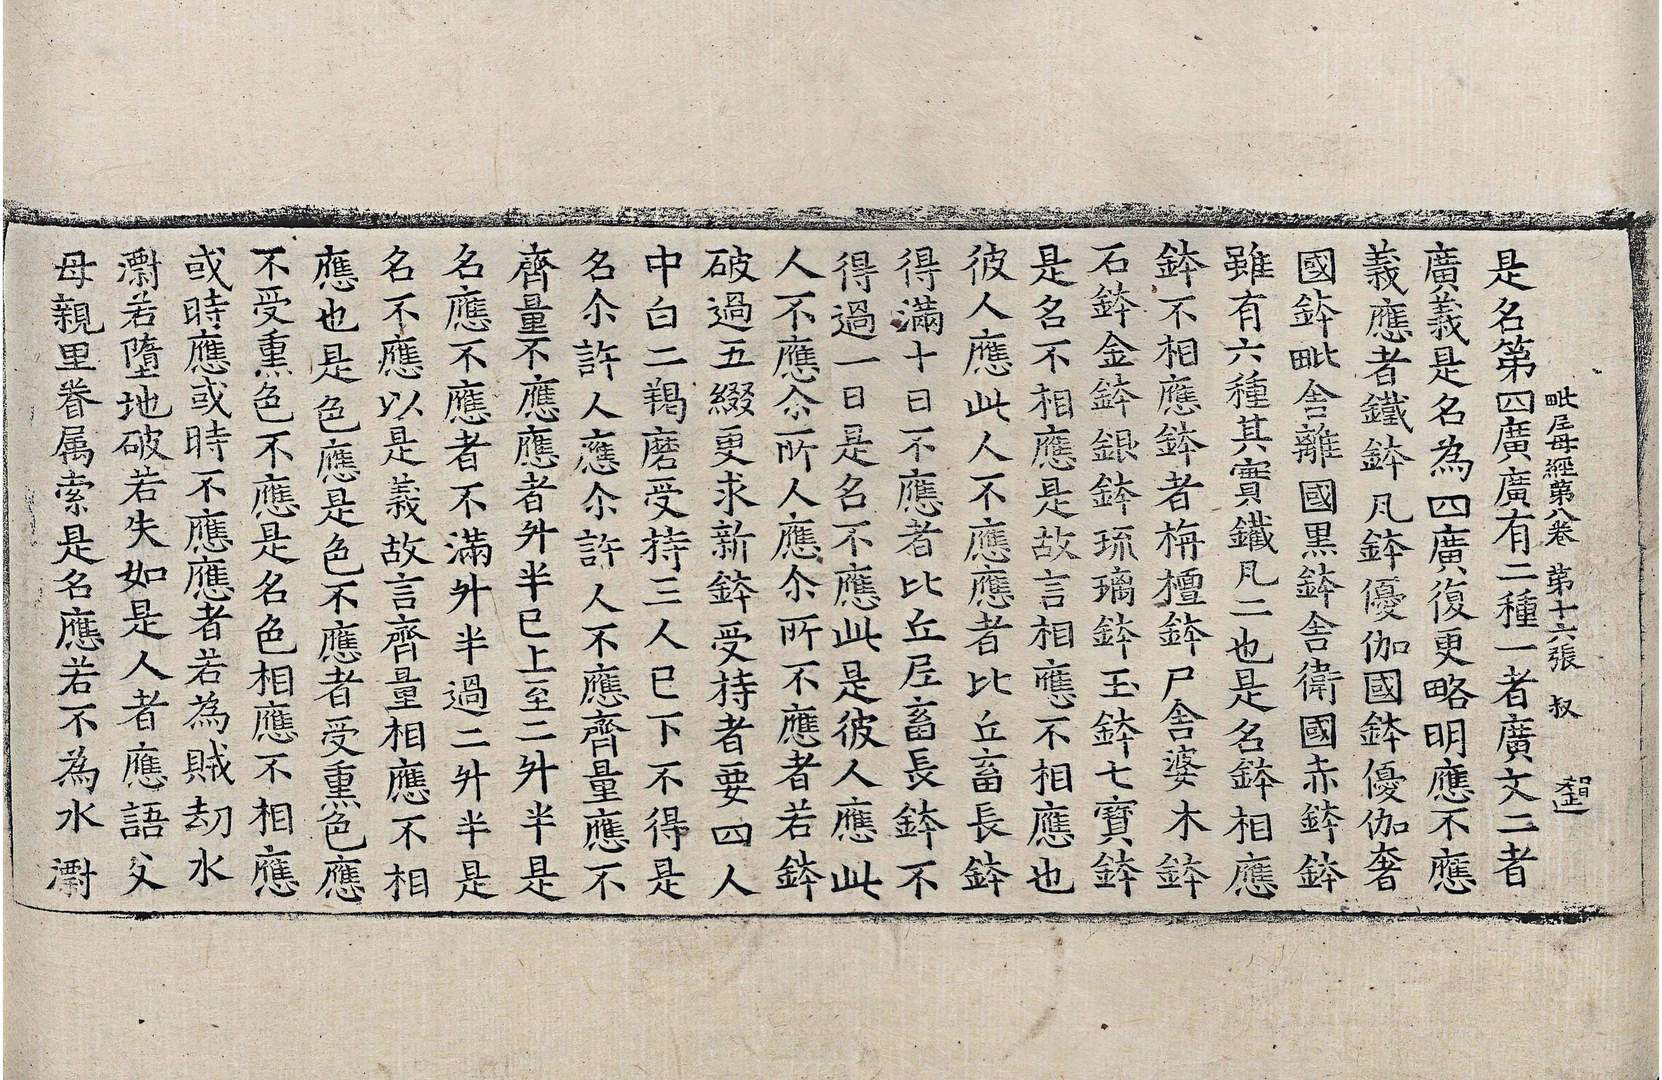 毗尼母經第八卷 第十六張 叔
是名第四廣廣有二種一者廣文二者
廣義是名為四廣復更略明應不應
義應者鐵鉢凡鉢優伽國鉢優伽奢
國鉢毗舍離國黑鉢舍衛國赤鉢鉢
雖有六種其實鐵凡二也是名鉢相應
鉢不相應鉢者栴檀鉢尸舍婆木鉢
石鉢金鉢銀鉢琉璃鉢玉鉢七寶鉢
是名不相應是故言相應不相應也
彼人應此人不應應者比丘畜長鉢
得滿十日不應者比丘尼畜長鉢不
得過一日是名不應此是彼人應此
人不應尒所人應尒所不應者若鉢
破過五綴更求新鉢受持者要四人
中白二羯磨受持三人已下不得是
名尒許人應尒許人不應齊量應不
齊量不應應者升半已上至二升半是
名應不應者不滿升半過二升半是
名不應以是義故言齊量相應不相
應也是色應是色不應者受熏色應
不受熏色不應是名色相應不相應
或時應或時不應應者若為賊劫水
㵱若墮地破若失如是人者應語父
母親里眷属索是名應若不為水㵱